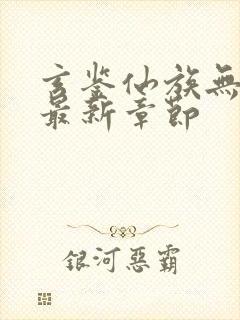 玄鉴仙族無
最新章節
銀河惡霸